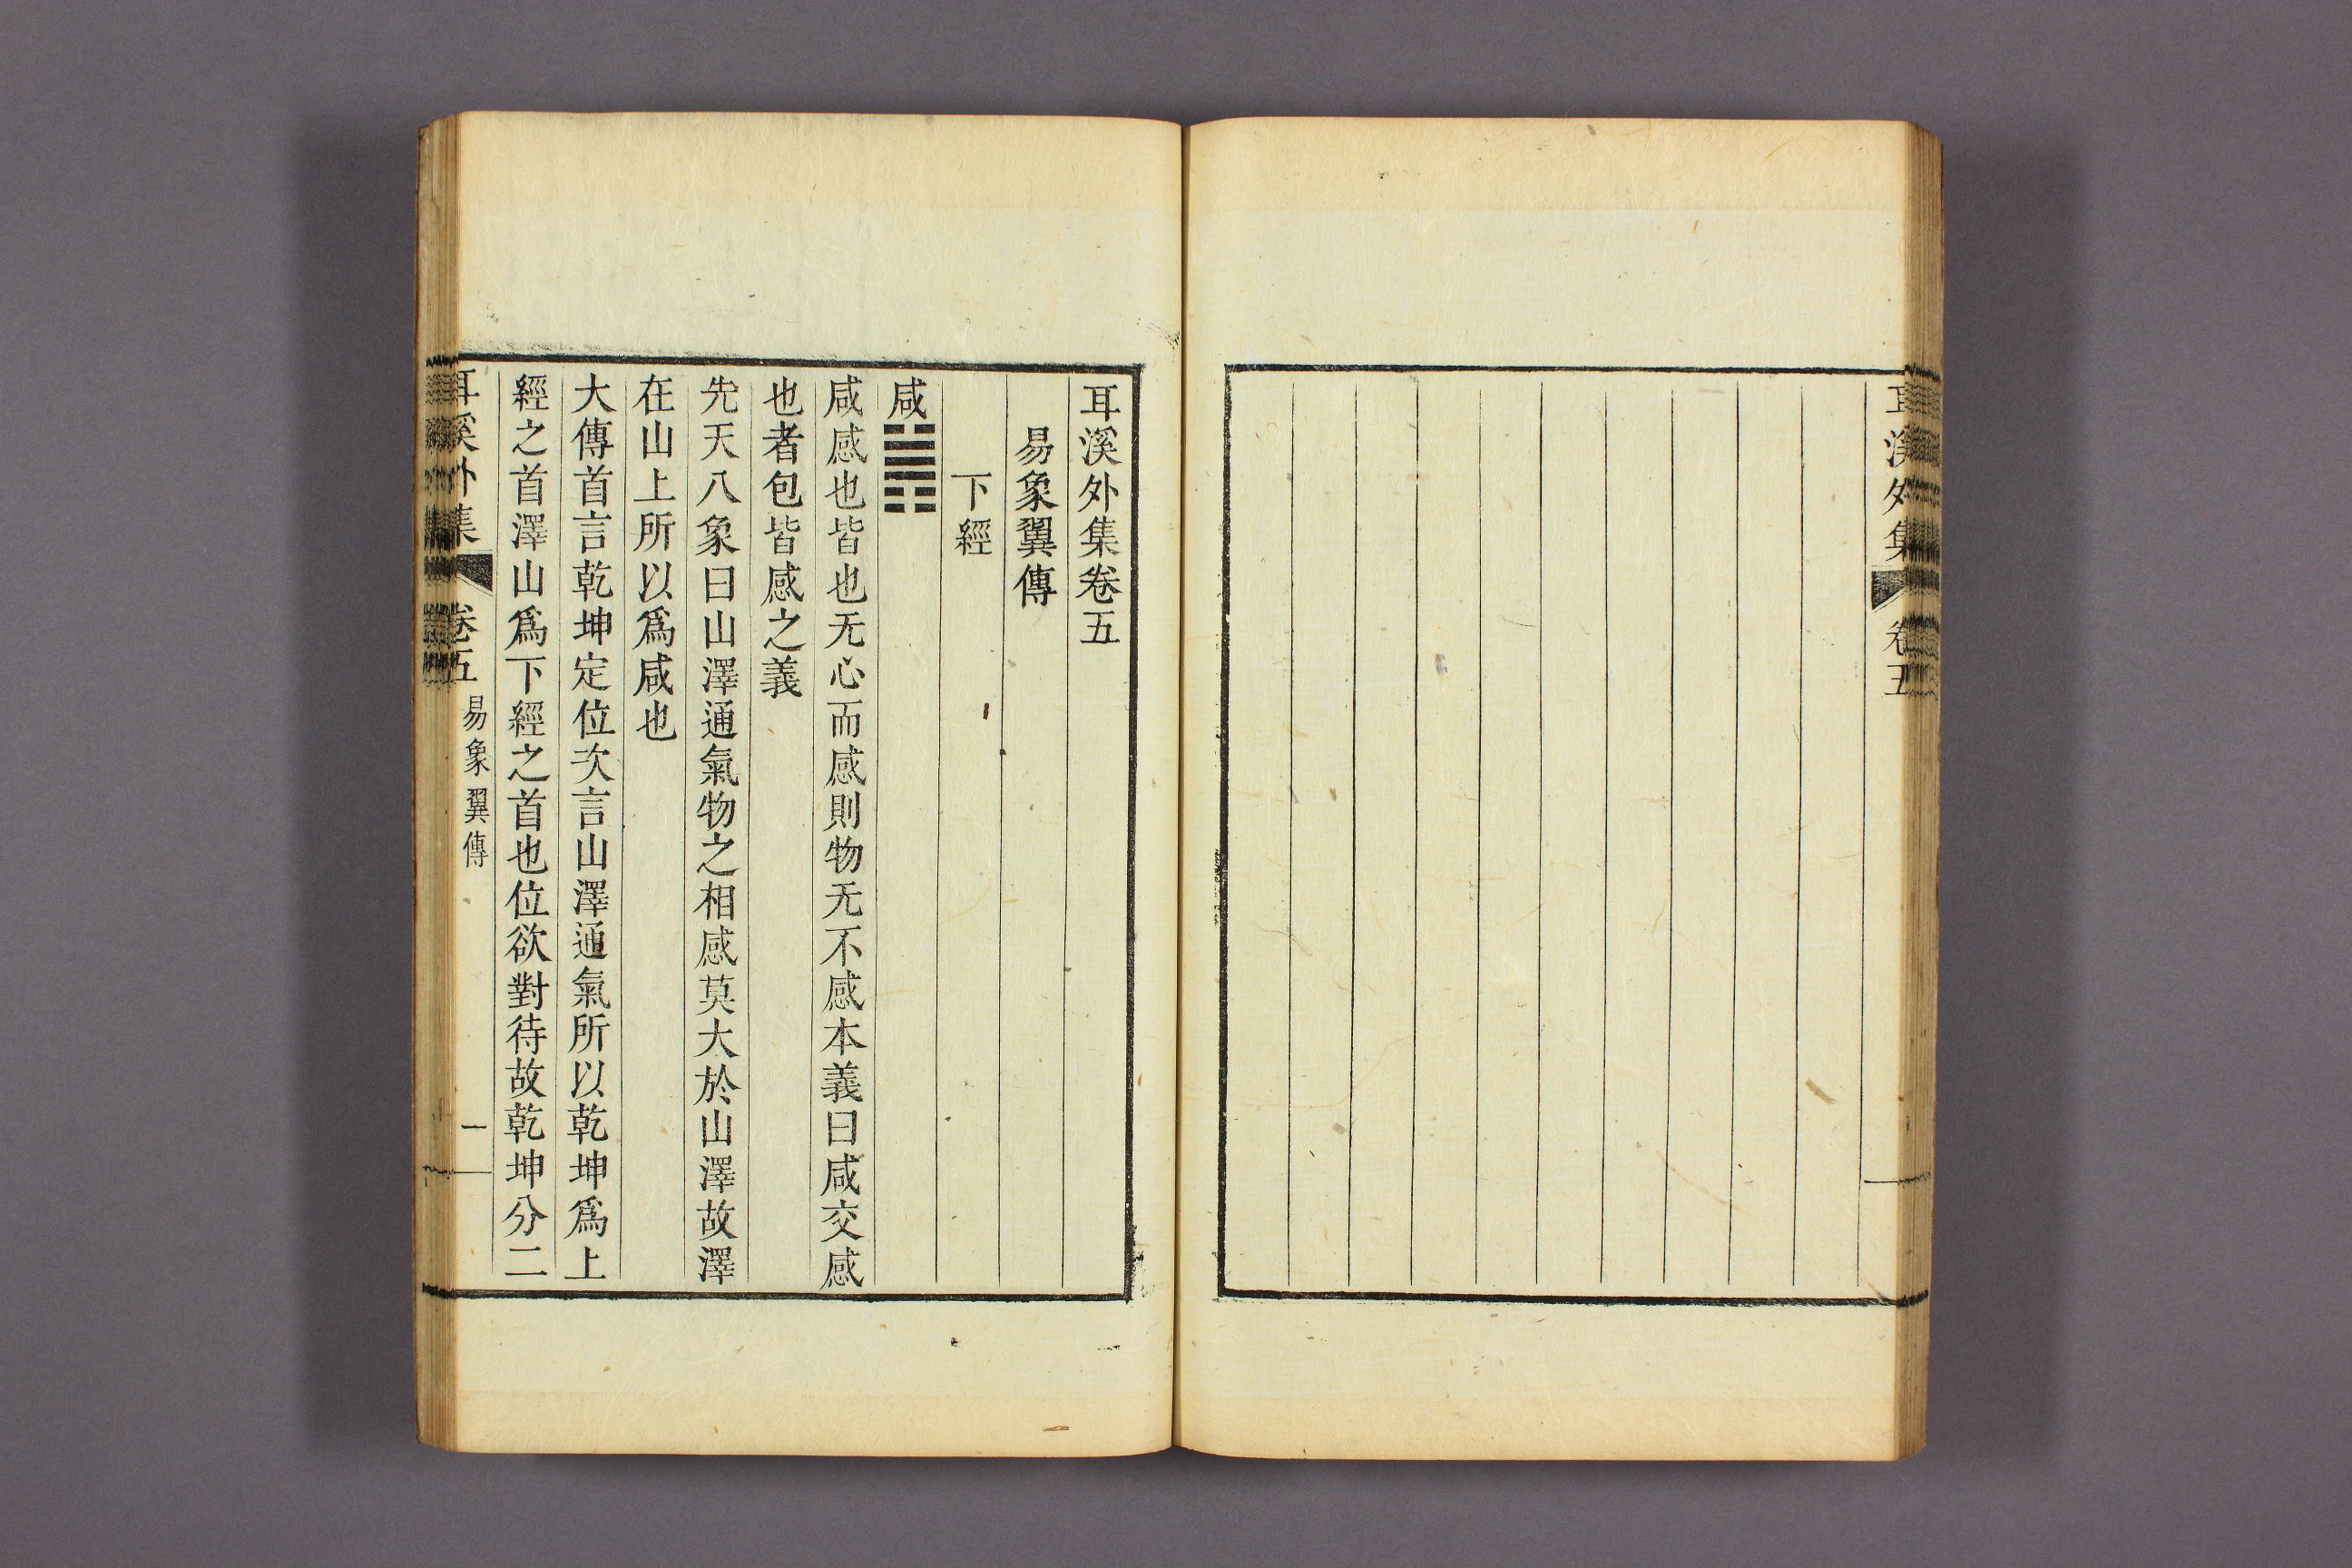 耳溪外集
卷五
耳溪外集卷五
易象翼傳
下經
咸䷞
咸感也皆也无心而感則物无不感本義曰咸交感
也者包皆感之義
先天八象曰山澤通氣物之相感莫大於山澤故澤
在山上所以爲咸也
大傳首言乾坤定位次言山澤通氣所以乾坤爲上
經之首澤山爲下經之首也位欲對待故乾坤分二
耳溪外集
卷五
易象翼傳
一